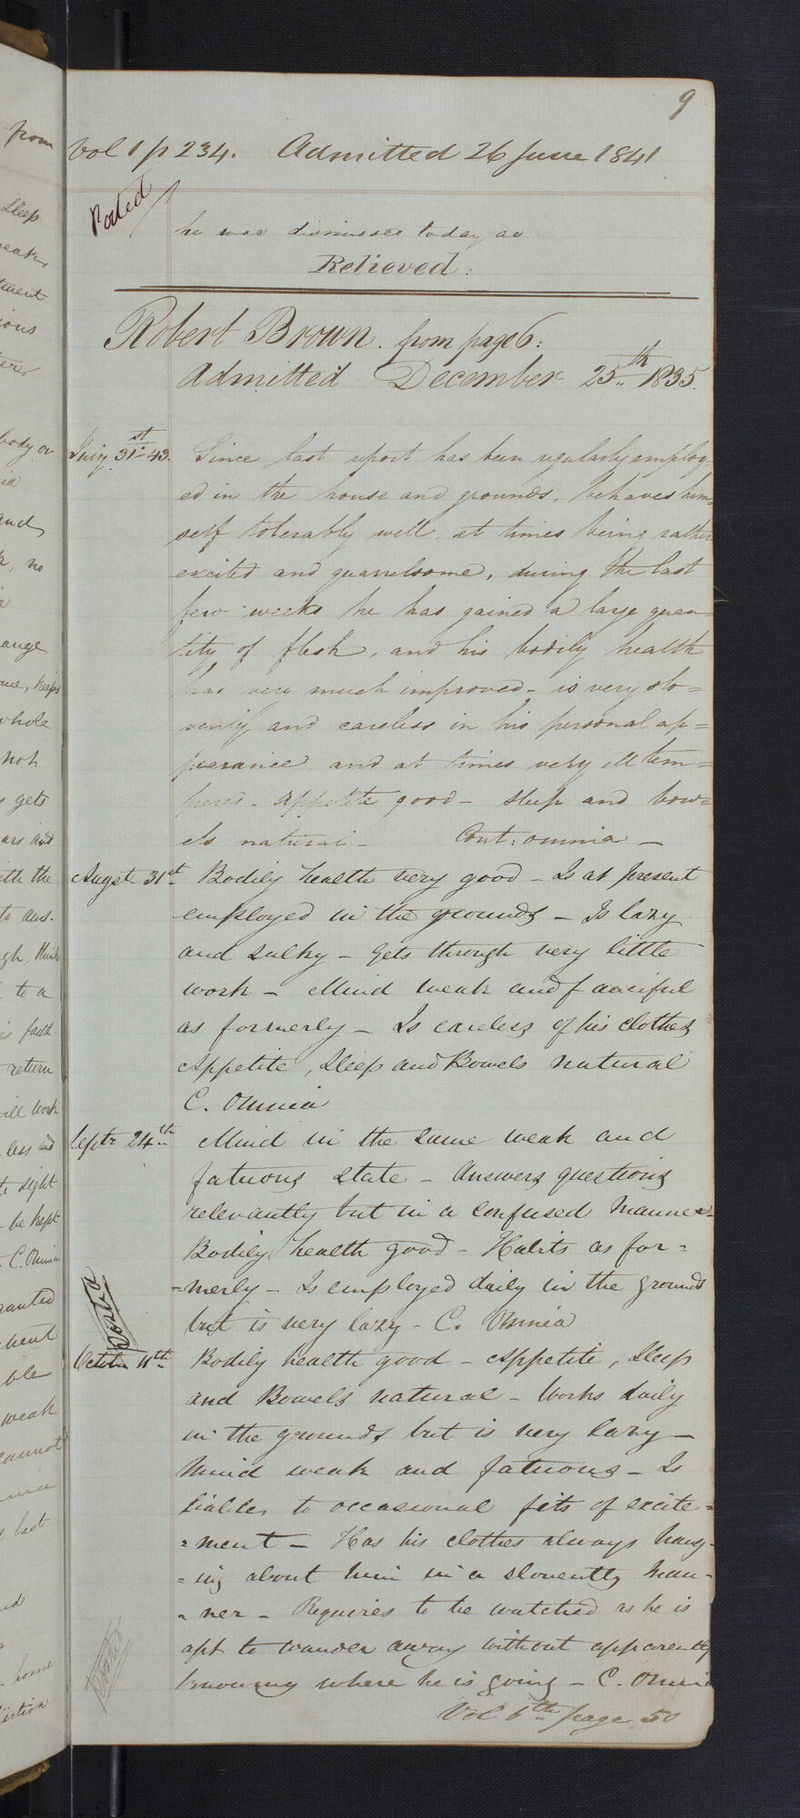 9
Vol 1 p 234. Admitted 26 June 1841
Posted
he was dismissed today as
Relieved:
Robert Brown. from page 6:
Admitted December 25th 1835.
July 31st 43. Since last report has been regularly employ-
ed in the house and grounds, behaves him-
self tolerably well, at times being rather
excited and quarrelsome, during the last
few weeks he has gained a large quan-
tity of flesh, and his bodily health
has very much improved - is very slo=
venly and careless in his personal ap=
pearance and at times very ill tem=
pered - Appetite good - sleep and bow=
els natural - Cont: omnia -
Augst 31st Bodily health very good - Is at present
employed in the grounds - Is lazy
and sulky - Gets through very little
work - Mind weak and fanciful
as formerly - Is careless of his clothes
Appetite, Sleep and Bowels natural
C. Omnia
Septr 24th Mind in the same weak and
fatuous state - Answers questions
relevantly but in a confused manner -
Bodily health good - Habits as for=
=merly - Is employed daily in the grounds
but is very lazy - C. Omnia
Posted
October 11th Bodily health good - Appetite, Sleep
and Bowels natural - Works daily
in the grounds but is very lazy -
Mind weak and fatuous - Is
liable to occasional fits of excite=
=ment - Has his clothes always hang-
=ing about him in a slovenly man-
=ner - Requires to be watched as he is
apt to wander away without apparently
knowing where he is going - C. Omnia
Posted
Vol 6th page 50
from
sleep
tment
ious
body or
and
no
ange
me, keeps
whole
not
gets
ars and
ith the
to ans-
gh, thinks
to a
return
will work
less and
sight
be kept
C. Omnia
ble
weak
cannot
last
home